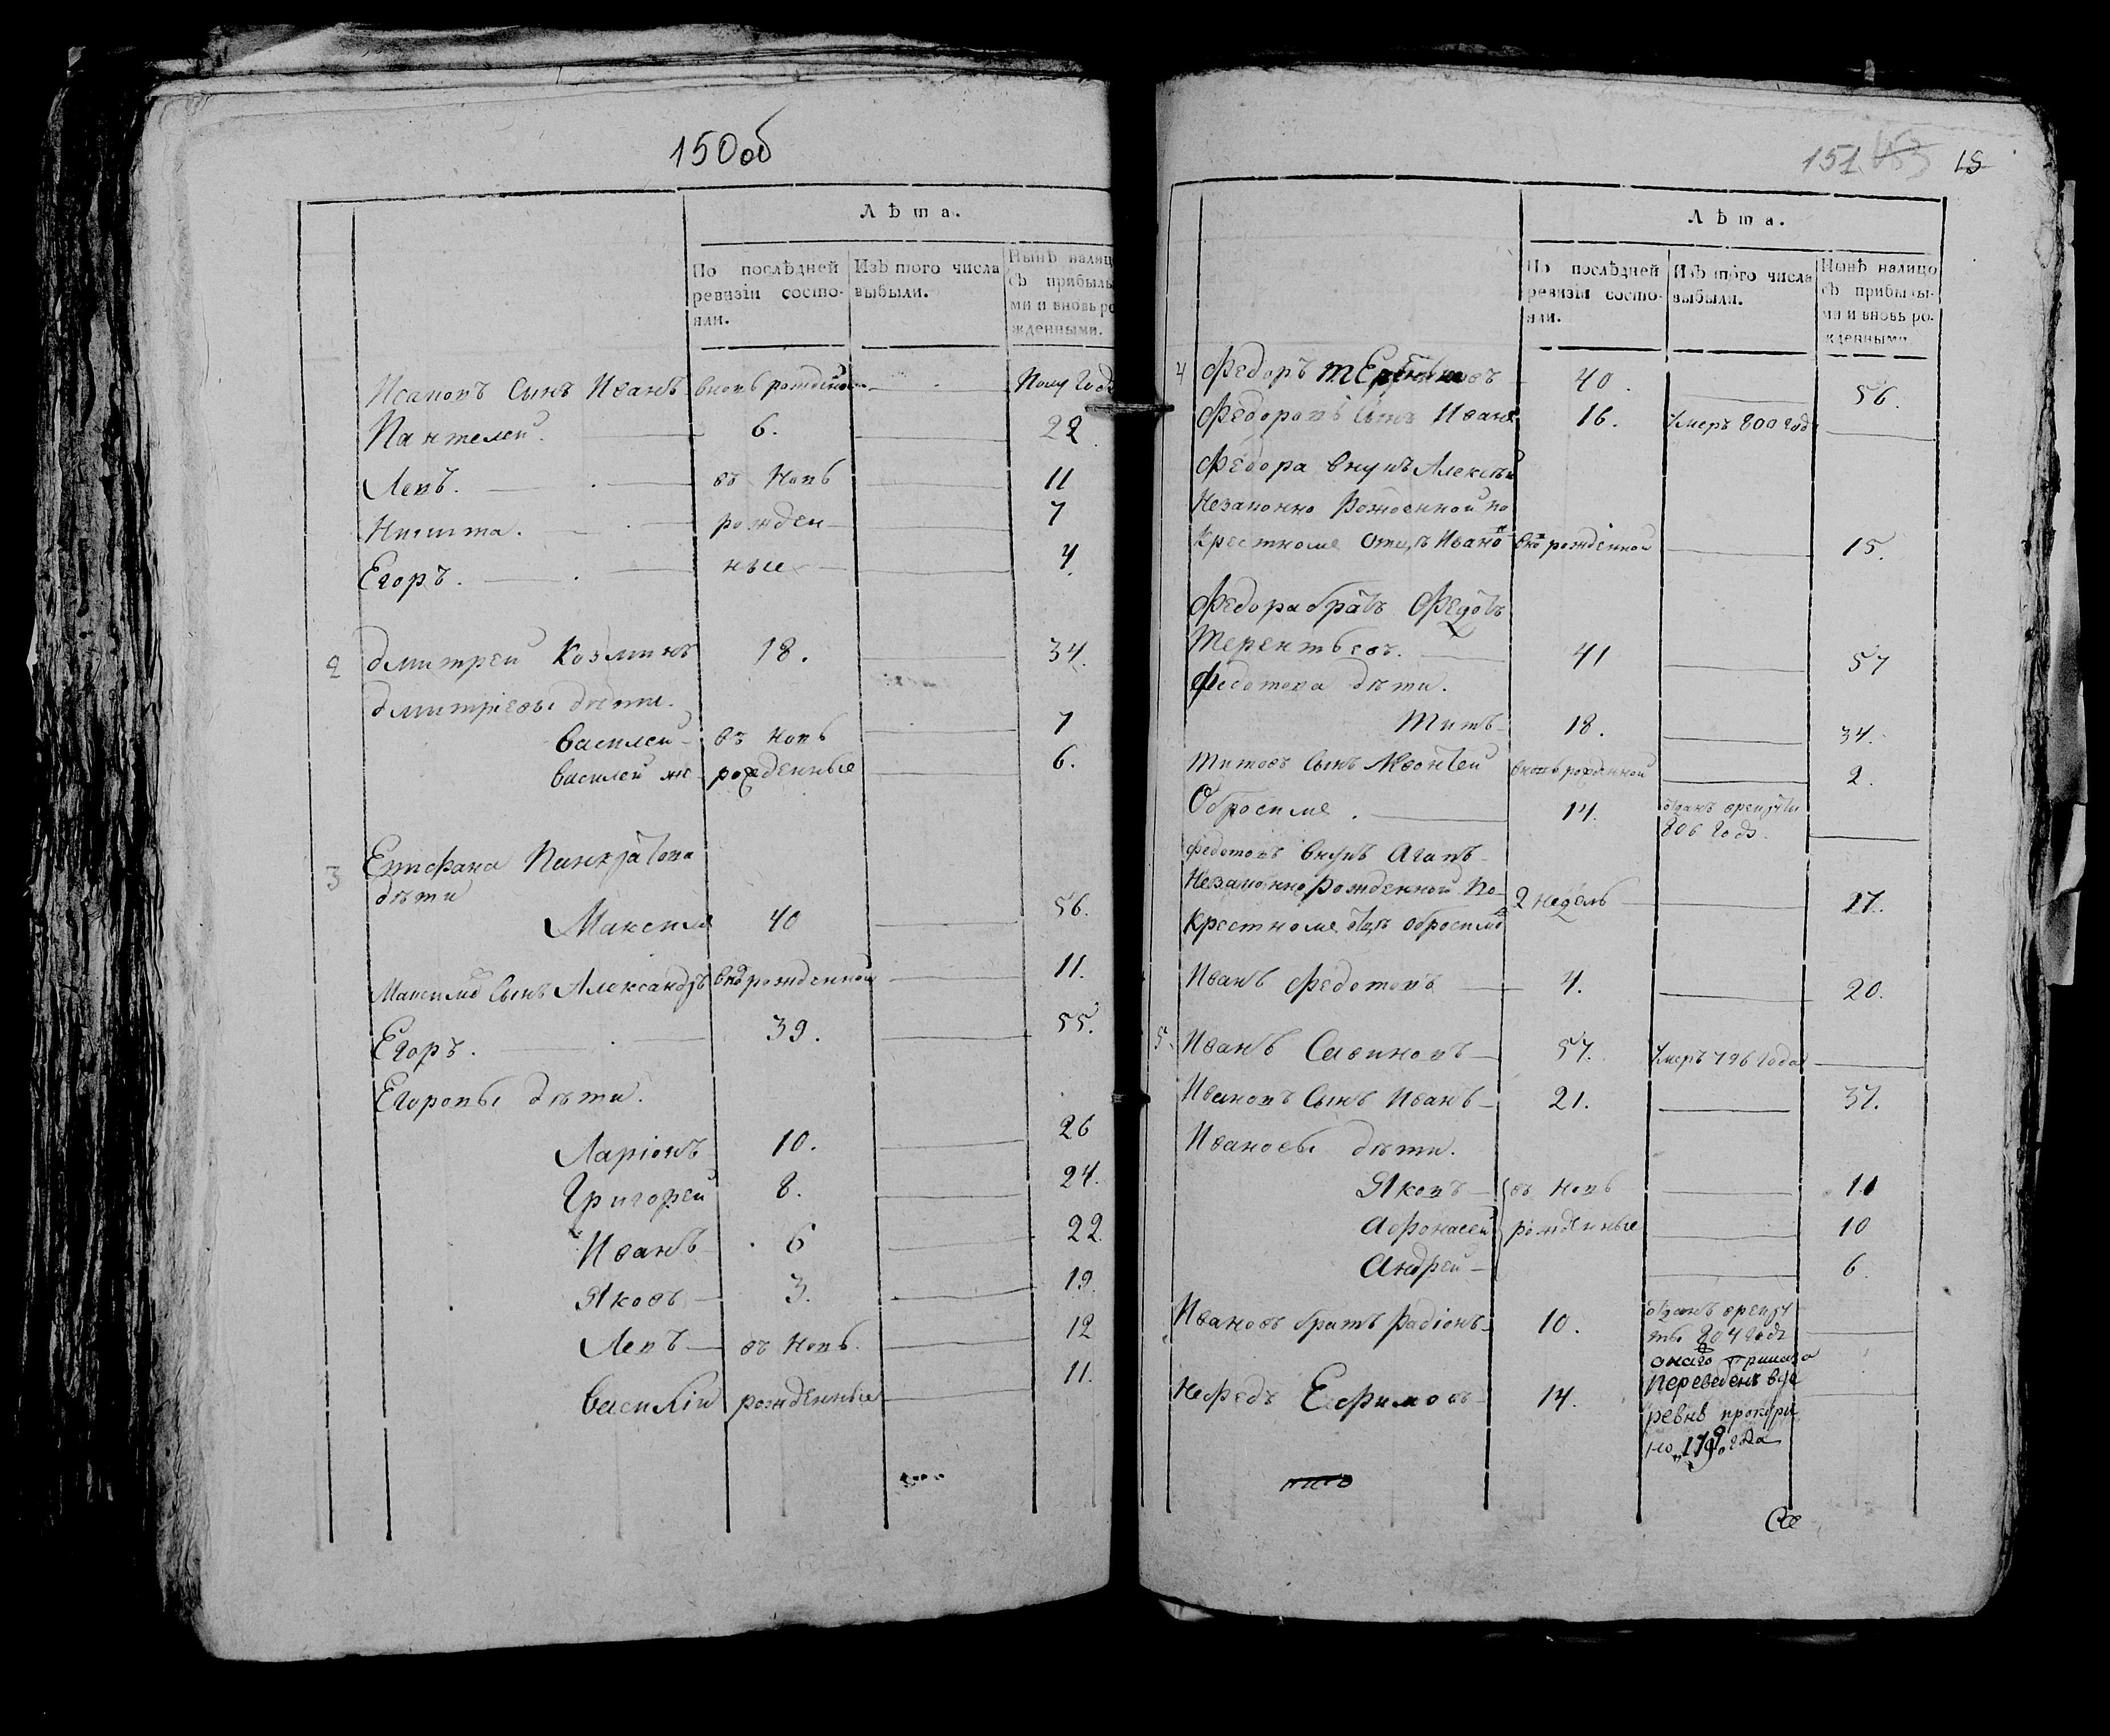 150об
Лѣта.
По послѣдней ревизіи состояли.
Изъ того числа выбыли.
Нынѣ налицо съ прибылыми и вновь рожденными.
Исаковъ сынъ Иванъ вновь рожденной Полу года
Пантелей. 6. 22.
Левъ. въ новь 11
Никита. рожден 7
Егоръ. ные 4.
2 Дмитрей Козминъ 18. 34.
Дмитріевы дѣти.
Василей въ новь 7
Василей же рожденные 6.
3 Епифана Панкратова
дѣти
Максимъ 40 56.
Максимо сынъ Александръ вно рожденной 11.
Егоръ. 39. 55.
Егоровы дѣти.
Ларіонъ 10. 26
Григорей 8. 24.
Иванъ 6 22.
Яковъ 3. 19.
Левъ въ новь. 12
Василій рожденные 11.
151 153 15
Лѣта.
По послѣдней ревизіи состояли.
Изъ того числа выбыли.
Нынѣ налицо съ прибылыми и вновь рожденными.
4 Федоръ 40. 56.
Федоровъ сынъ Иванъ 16. Умеръ 800 году
Федора внукъ Алексѣй
Незаконно Рожденной по
Крестноме отцѣ Ивано вно рожденной 15.
Федора братъ Федотъ
Терентьевъ. 41 57
Федотова дѣти.
Титъ 18. 34.
Титовъ сынъ Авонтей вновь рожденной 2.
Обросиме. 14. отданъ
806 годъ.
Федотовъ внукъ Агапъ
Незаконно Рожденной По 2 недель 17.
Крестноме отцѣ Обросимо
Иванъ Федотовъ 4. 20.
5. Иванъ Савиновъ 57. Умеръ 796 года
Ивановъ сынъ Иванъ 21. 37.
Ивановы дѣти.
Яковъ въ новь 11
Афонасей рожденные 10
Андрей 6.
Ивановъ братъ Радіонъ 10. отданъ
804 годъ
Нефедъ Ефимовъ 14. онаго Приказа
переведенъ в де
ревнѣ
но 179 года